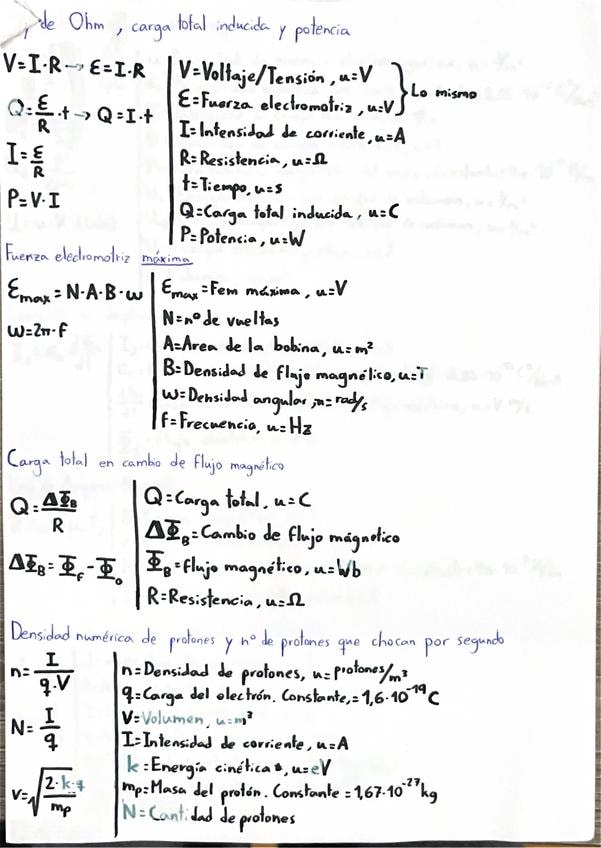 , de Ohm , carga total inducida y potencia
V=I·R → Ɛ=I·R
Q=Ɛ/R·t → Q=I·t
I=Ɛ/R
P=V·I
V=Voltaje/Tensión, u=V
Ɛ=Fuerza electromotriz, u=V
Lo mismo
I=Intensidad de corriente, u=A
R=Resistencia, u=Ω
t=Tiempo, u=s
Q=Carga total inducida, u=C
P=Potencia, u=W
Fuerza electromotriz máxima
Ɛmax=N·A·B·w
w=2π·f
Ɛmax=Fem máxima, u=V
N=nº de vueltas
A=Area de la bobina, u=m²
B=Densidad de flujo magnético, u=T
w=Densidad angular, u=rad/s
f=Frecuencia, u=Hz
Carga total en cambio de flujo magnético
Q=ΔΦB/R
ΔΦB=Φf-Φo
Q=Carga total, u=C
ΔΦB=Cambio de flujo mágnetico
ΦB=flujo magnético, u=Wb
R=Resistencia, u=Ω
Densidad numérica de protones y nº de protones que chocan por segundo
n=I/q·V
N=I/q
v=√2·k·q/mp
n=Densidad de protones, u=protones/m³
q=Carga del electrón. Constante,=1,6·10⁻¹⁹C
V=Volumen, u=m³
I=Intensidad de corriente, u=A
k=Energía cinética, u=eV
mp=Masa del protón. Constante=1,67·10⁻²⁷kg
N=Cantidad de protones